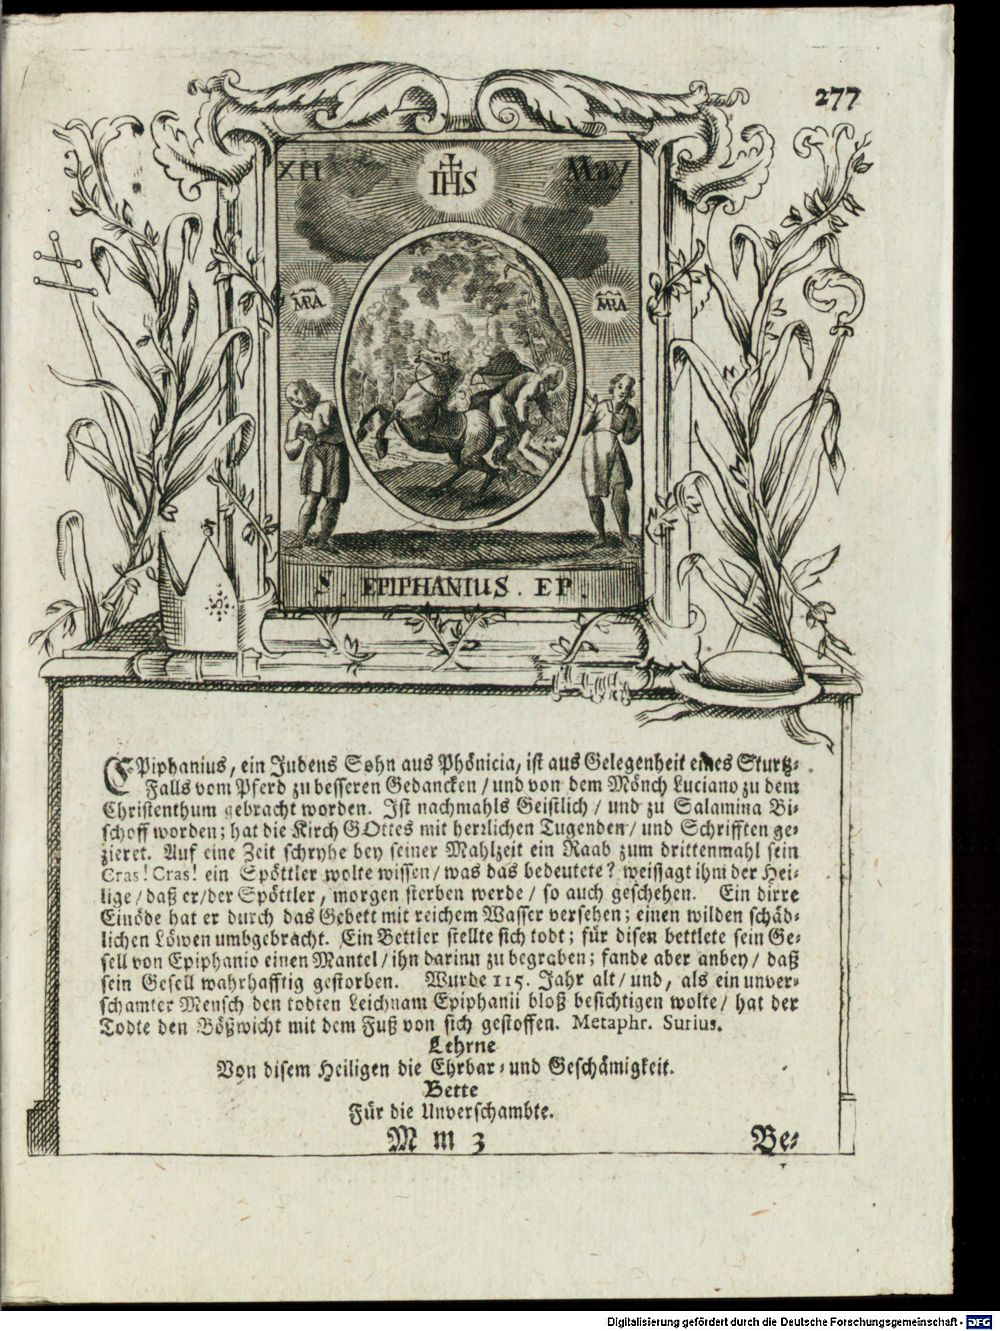 277
XII May
IHS
MRA MRA
S. EPIPHANIUS. EP.
EPiphanius, ein Judens Sohn aus Phönicia, ist aus Gelegenheit eines Sturtz-
Falls vom Pferd zu besseren Gedancken / und von dem Mönch Luciano zu dem
Christenthum gebracht worden. Ist nachmahls Geistlich / und zu Salamina Bi-
schoff worden; hat die Kirch GOttes mit herrlichen Tugenden / und Schrifften ge-
zieret. Auf eine Zeit schryhe bey seiner Mahlzeit ein Raab zum drittenmahl sein
Cras! Cras! ein Spöttler wolte wissen / was das bedeutete? weissagt ihm der Hei-
lige / daß er / der Spöttler, morgen sterben werde / so auch geschehen. Ein dirre
Einöde hat er durch das Gebett mit reichem Wasser versehen; einen wilden schäd-
lichen Löwen umbgebracht. Ein Bettler stellte sich todt; für disen bettlete sein Ge-
sell von Epiphanio einen Mantel / ihn darinn zu begraben; fande aber anbey / daß
sein Gesell wahrhafftig gestorben. Wurde 115. Jahr alt / und, als ein unver-
schamter Mensch den todten Leichnam Epiphanii bloß besichtigen wolte / hat der
Todte den Bößwicht mit dem Fuß von sich gestossen. Metaphr. Surius.
Lehrne
Von disem Heiligen die Ehrbar- und Geschämigkeit.
Bette
Für die Unverschambte.
M m 3 Be-
Digitalisierung gefördert durch die Deutsche Forschungsgemeinschaft - DFG